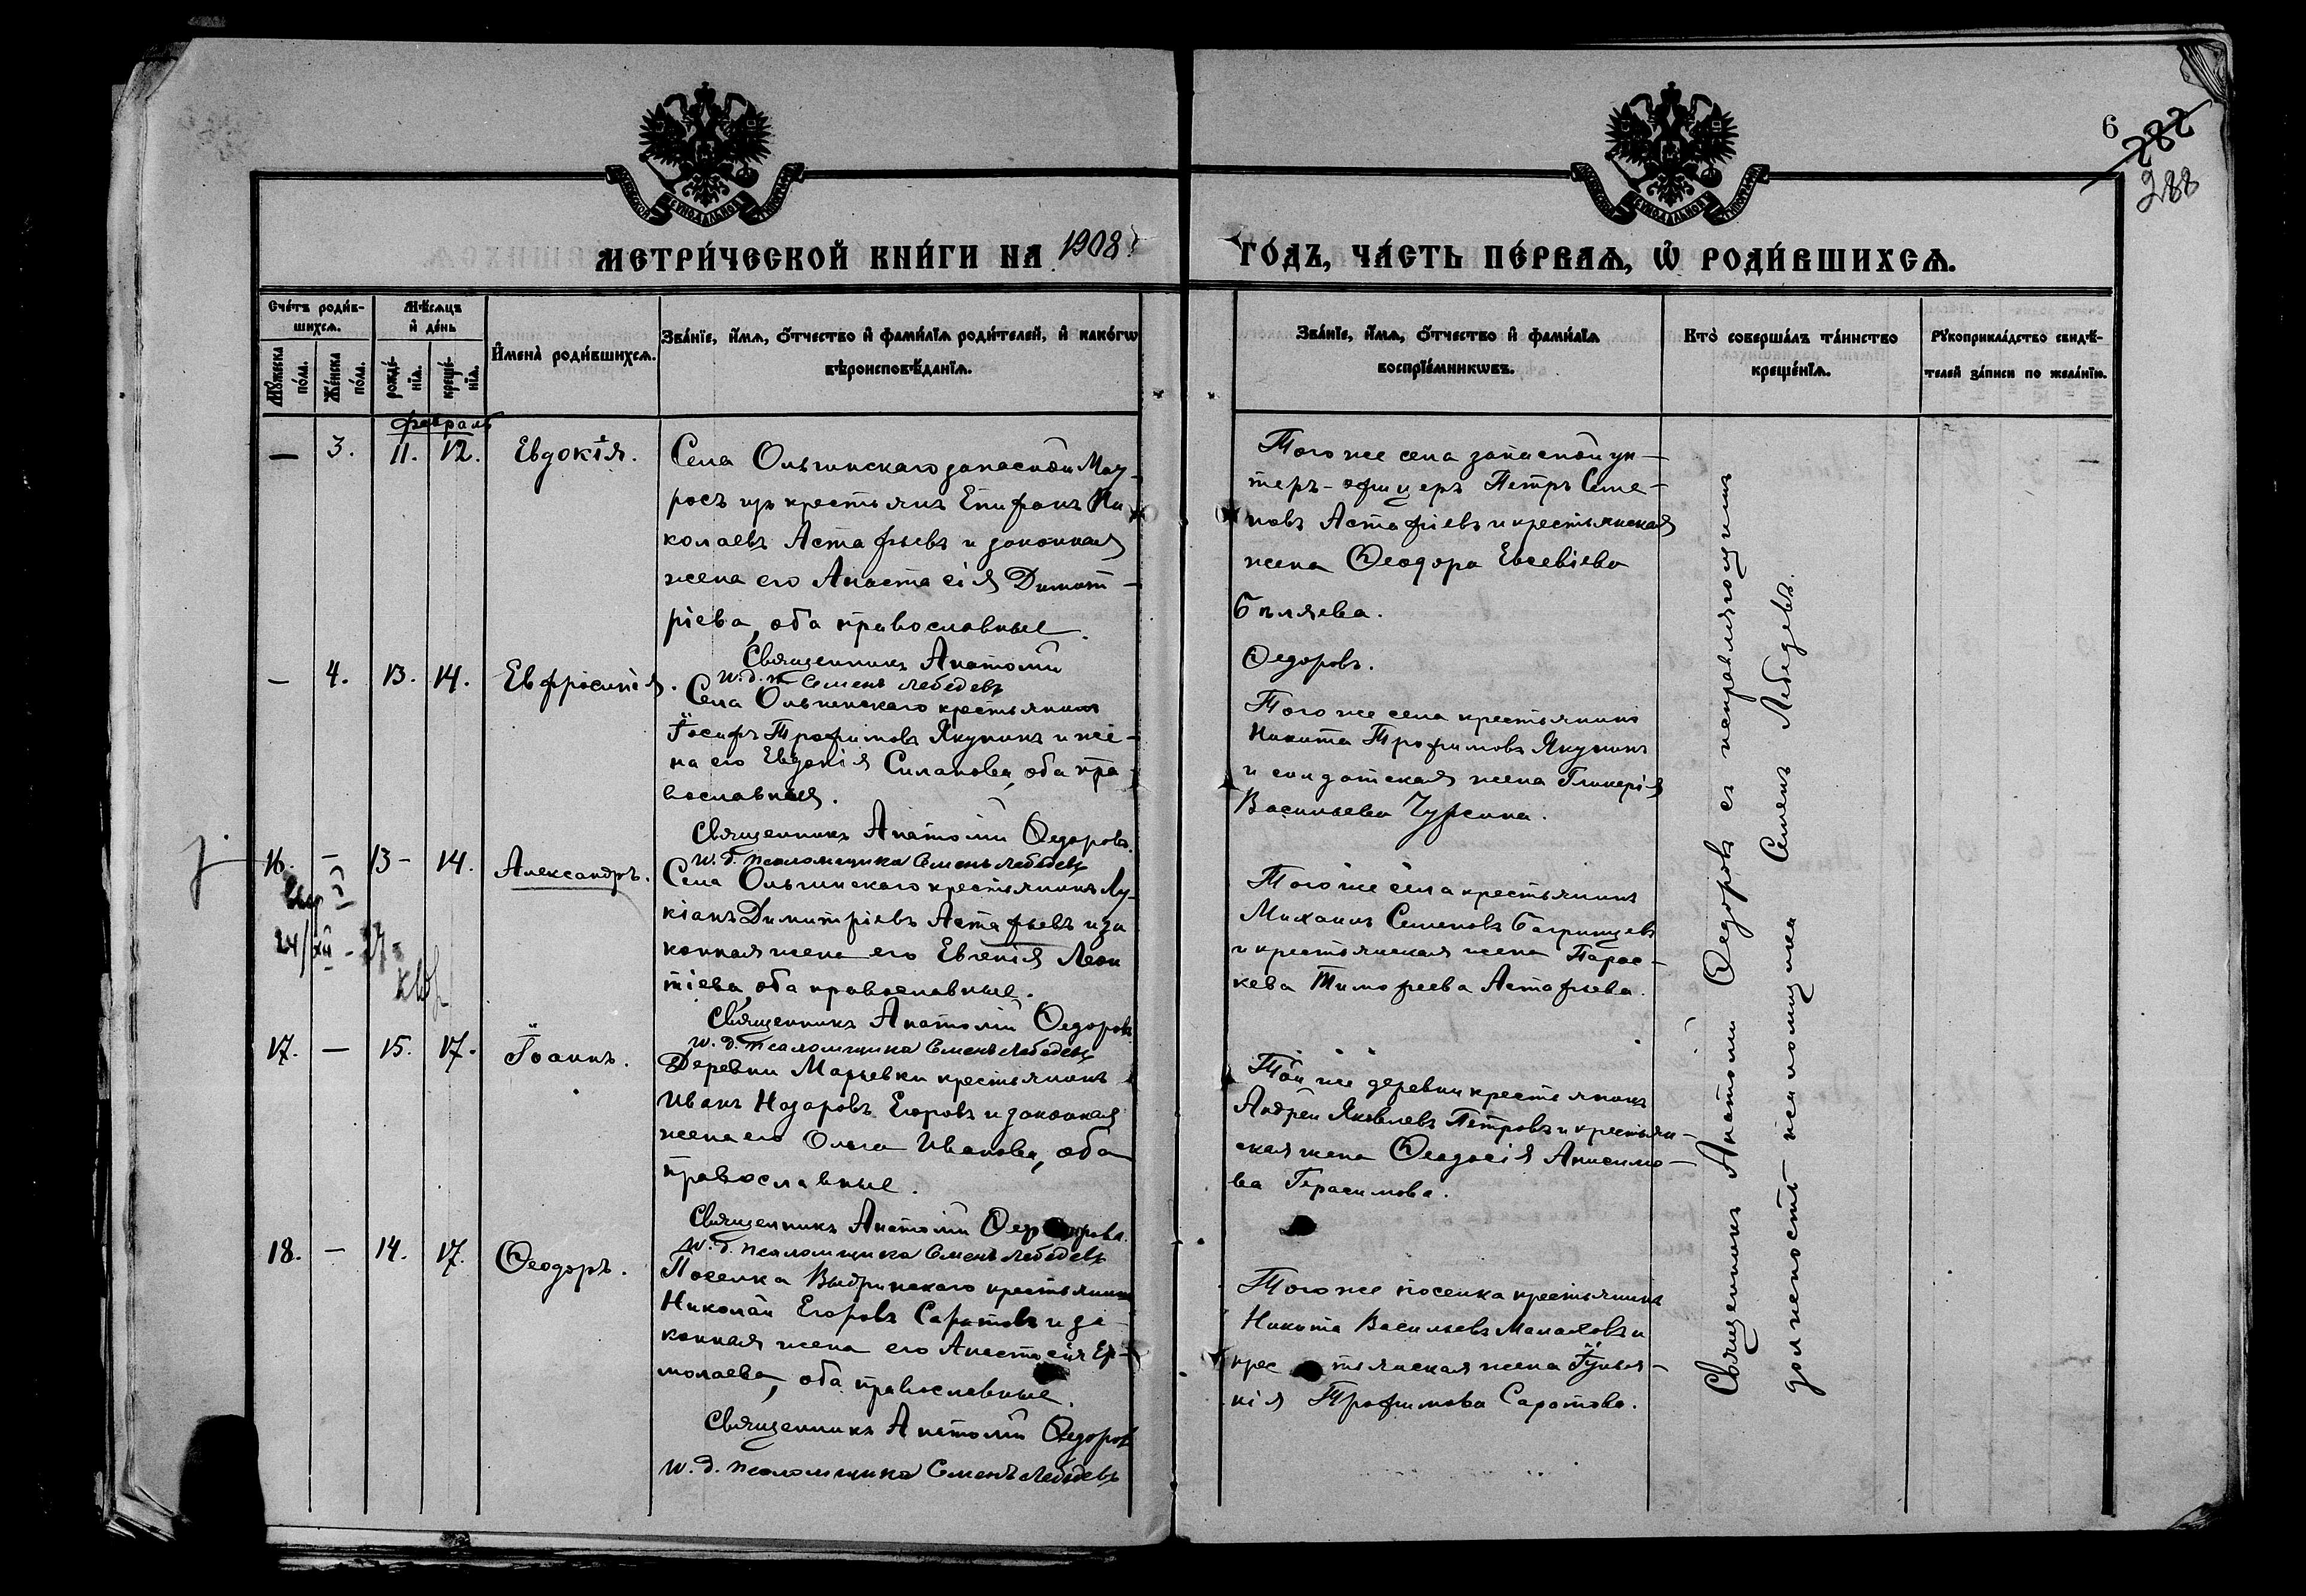 6
282
288
МЕТРИ́ЧЕСКОЙ КНИ́ГИ НА 1908 ГО́ДЪ, ЧА́СТЬ ПЕ́РВАѦ, Ѡ҆ РОДИ́ВШИХСѦ.
Сче́тъ роди́в-
шихсѧ.
Мꙋ́жеска по́ла.
Же́нска по́ла.
Мѣ́сѧцъ
и҆ де́нь
рожде́-
нїѧ.
креще́-
нїѧ.
И҆мена̀ роди́вшихсѧ.
Зва́нїе, и҆́мѧ, ѻ҆́тчество и҆ фамѝлїѧ роди́телей, и҆ како́гѡ
вѣроисповѣ́данїѧ.
Зва́нїе, и҆́мѧ, ѻ҆́тчество и҆ фамѝлїѧ
воспрїе́мникѡвъ.
Кто̀ соверша́лъ та́инство
креще́нїѧ.
Рꙋкоприкла́дство свидѣ́-
телей за́писи по жела́нїю.
февраль
— 3. 11. 12. Евдокія.
Села Ольгинскаго запасной Мат-
росъ изъ крестьянъ Епифанъ Ни
колаевъ Астафьевъ и законная
жена его Анастасія Димит-
ріева, оба православные.
Священникъ Анатолій Ѳедоровъ.
и. д. п Семенъ Лебедевъ
Того же села запасной ун-
теръ-офицеръ Петръ Семе-
новъ Астафіевъ и крестьянская
жена Ѳеодора Евсевіева
Бѣляева.
— 4. 13. 14. Евфросинія.
Села Ольгинскаго крестьянинъ
Іосифъ Трофимовъ Якунинъ и же-
на его Евдокія Силанова, оба пра-
вославныя.
Священникъ Анатолій Ѳедоровъ.
и. д. псаломщика Семенъ Лебедевъ
Того же села крестьянинъ
Никита Трофимовъ Якунинъ
и солдатская жена Гликерія
Васильева Чурсина.
16. — 13 — 14. Александръ.
24/XII - 27
Села Ольгинскаго крестьянинъ Лу-
кіанъ Димитріевъ Астафьевъ и за
конная жена его Евгенія Леон
тіева, оба православные.
Священникъ Анатолій Ѳедоровъ
и. д. псаломщика Семенъ Лебедевъ
Того же села крестьянинъ
Михаилъ Семеновъ Багринцевъ
и крестьянская жена Парас-
кева Тимофеева Астафьева.
17. — 15. 17. Іоаннъ.
Деревни Марьевки крестьянинъ
Иванъ Назаровъ Егоровъ и законная
жена его Ольга Иванова, оба
православные.
Священникъ Анатолій Ѳедоровъ.
и. д. псаломщика Семенъ Лебедевъ
Той же деревни крестьянинъ
Андрей Яковлевъ Петровъ и крестьян-
ская жена Ѳеодосія Анисимо-
ва Герасимова.
18. — 14. 17. Ѳеодоръ.
Поселка Выдринскаго крестьянинъ
Николай Егоровъ Саратовъ и за-
конная жена его Анастасія Ер-
молаева, оба православные.
Священникъ Анатолій Ѳедоровъ
и. д. псаломщика Семенъ Лебедевъ
Того же поселка крестьянинъ
Никита Васильевъ и
крестьянская жена
кія Трофимова Саратова.
Священникъ Анатолій Ѳедоровъ съ исправляющимъ
должность псаломщика Семенъ Лебедевъ.